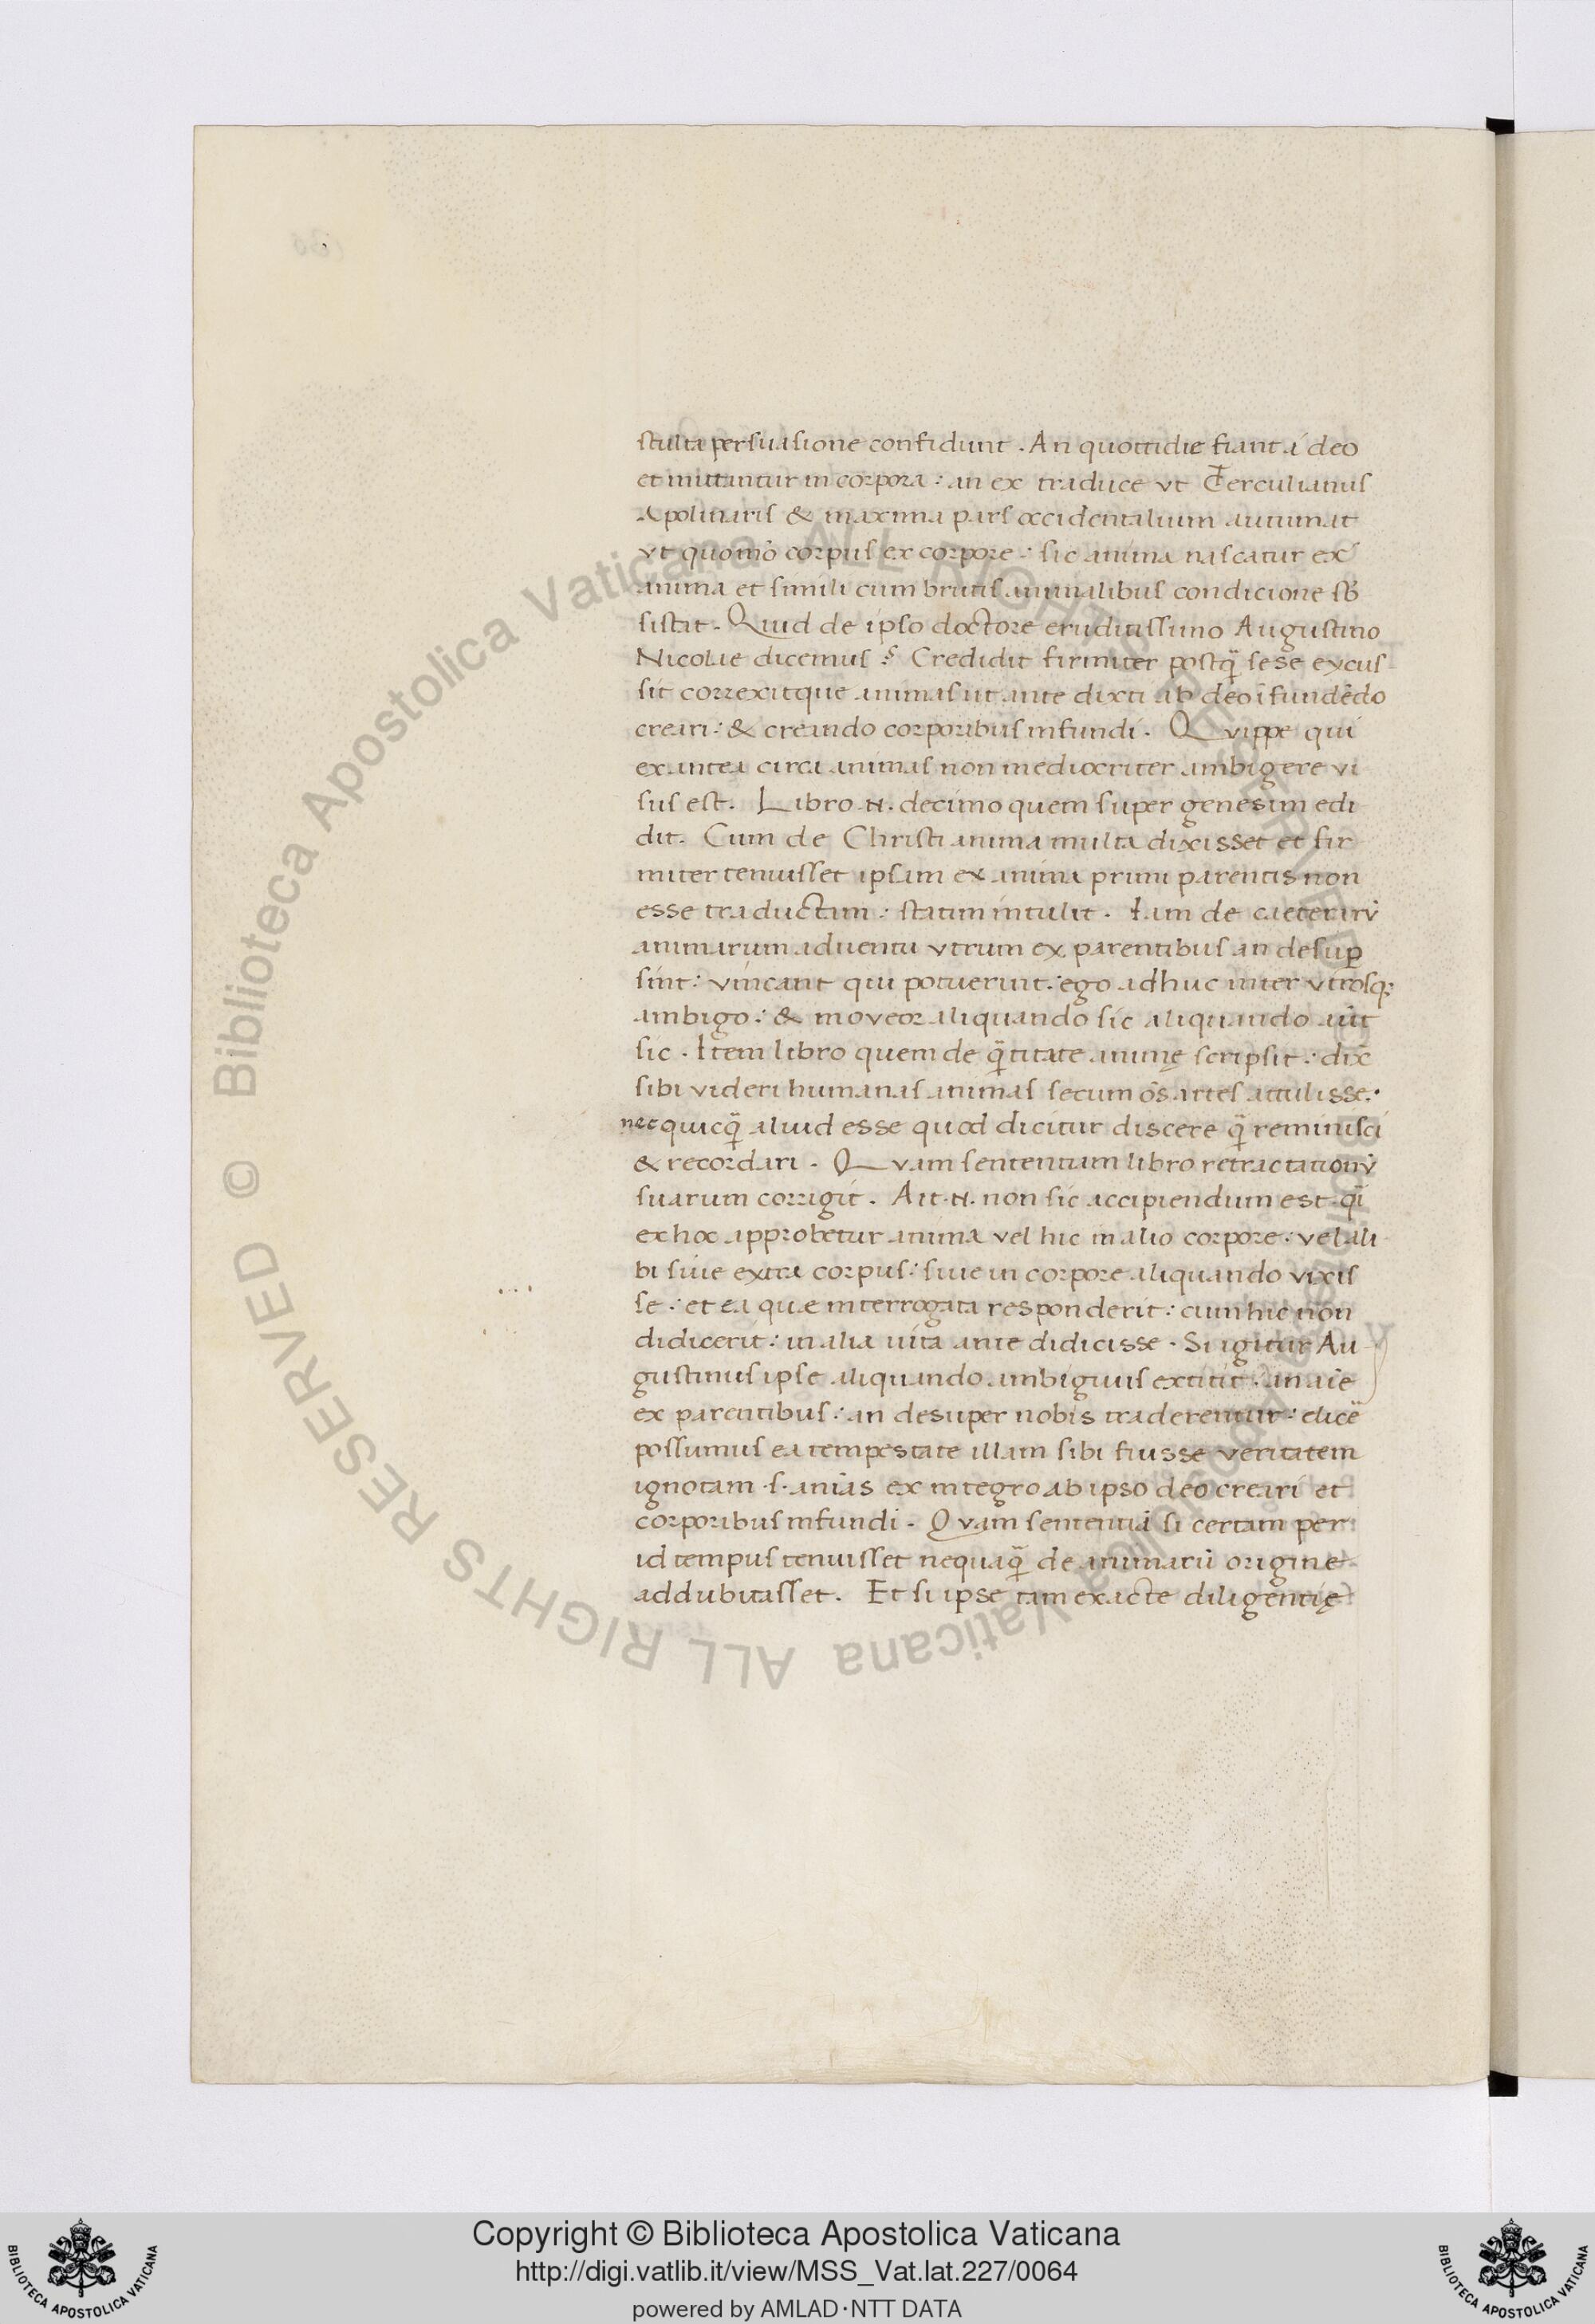 stulta persuasione confidunt. An quottidie fiant á deo
et mittantur in corpora: an ex traduce vt Terculianus
Apolinaris & maxima pars occidentalium autumat
vt quomō corpus ex corpore: sic anima nascatur ex
anima et simili cum brutis animalibus condicione sb̄
sistat. Quid de ipso doctore eruditissimo Augustino
Nicolae dicemus? Credidit firmiter postq̄ sese excus
sit correxitque animas ut ante dixi ab deo īfundēdo
creari: & creando corporibus infundi. Qvippe qui
ex antea circa animas non mediocriter ambigere vi
sus est. Libro .n. decimo quem super genesim edi
dit. Cum de Christi anima multa dixisset et fir
miter tenuisset ipsam ex anima primi parentis non
esse traductam: statim intulit. Iam de caeterarū
animarum aduentu vtrum ex parentibus an desuꝑ
sint: vincant qui potuerint: ego adhuc inter vtrosq;
ambigo: & moveor aliquando sic aliquando aūt
sic. Item libro quem de q̄titate animę scripsit: dix̄
sibi videri humanas animas secum ōs artes attulisse.
nec quicq̄ aliud esse quod dicitur discere q̄ reminisci
& recordari. Qvam sententiam libro retractationū
suarum corrigit. Ait .n. non sic accipiendum est q̄i
ex hoc approbetur anima vel hic in alio corpore: vel ali
bi siue extra corpus: siue in corpore aliquando vixis
se: et ea quae interrogata responderit: cum hic non
didicerit: in alia uita ante didicisse. Si igitur Au
gustinus ipse aliquando ambiguus extitit: an aīe
ex parentibus: an desuper nobis traderentur: elicē
possumus ea tempestate illam sibi fuisse veritatem
ignotam .s. anīas ex integro ab ipso deo creari et
corporibus infundi. Qvam sententiā si certam per
id tempus tenuisset nequaq̄ de animarū origine
addubitasset. Et si ipse tam exacte diligentię
Copyright © Biblioteca Apostolica Vaticana
http://digi.vatlib.it/view/MSS_Vat.lat.227/0064
powered by AMLAD·NTT DATA
BIBLIOTECA APOSTOLICA VATICANA
BIBLIOTECA APOSTOLICA VATICANA
© Biblioteca Apostolica Vaticana ALL RIGHTS RESERVED
© Biblioteca Apostolica Vaticana ALL RIGHTS RESERVED